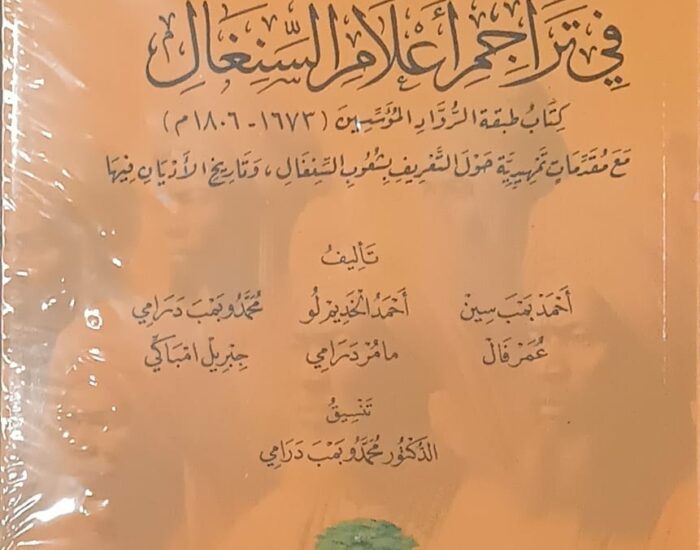 في تَرَاجِمِ أَعْلَامِ السِّنِغَالِ
كِتَابُ طبقة الرُّوَّادِ المُؤَسِّسِينَ (١٦٧٣ - ١٨٠٦م)
مَعَ مُقَدِّمَاتٍ تَمْهِيدِيَّةٍ حَوْلَ التَّعْرِيفِ بِشُعُوبِ السِّنِغَالِ، وَتَارِيخِ الأَدْيَانِ فِيهَا
تَأليفُ
أَحْمَدْ بَمْبَ سِينْ أَحْمَدُ الْخَدِيمْ لُو مُحَمَّدُو بَمْبَ دَرَامِي
عُمَرْ فَالْ مامُرْ دَرَامِي جِبْرِيلْ امْبَاكِّي
تَنْسِيقُ
الدُّكْتُور مُحَمَّدُو بَمْبَ دَرَامِي